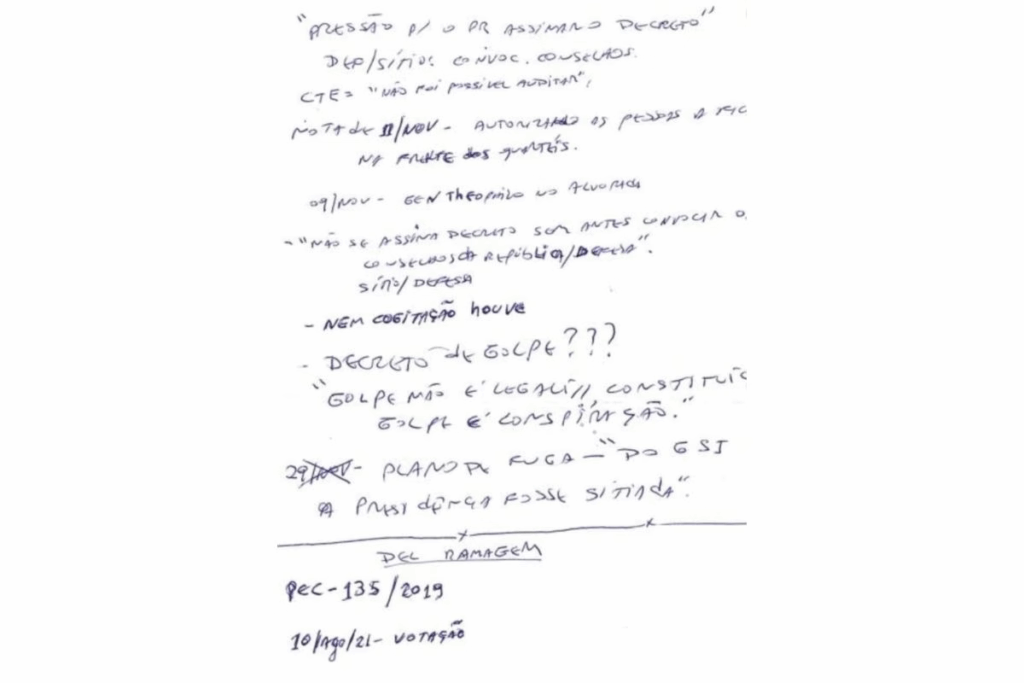 "PRESSÃO P/ O PR ASSINAR O DECRETO"
DEF/SÍTIO: CONVOC. CONSELHOS.
CTE = "NÃO FOI POSSÍVEL AUDITAR",
NOTA de 11/NOV - AUTORIZANDO AS PESSOAS A
NA FRENTE dos QUARTÉIS.
09/NOV - GEN THEOPHILO NO ALVORADA
- "NÃO SE ASSINA DECRETO SEM ANTES CONVOCAR O
CONSELHOS da REPÚBLICA/DEFESA".
SÍTIO/DEFESA
- NEM COGITAÇÃO houve
- DECRETO de GOLPE???
"GOLPE NÃO É LEGAL, CONSTITUIC
GOLPE É CONSPIRAÇÃO."
29/NOV - PLANO DE FUGA - "DO GSI
A PRESIDÊNCIA FOSSE SITIADA".
DEL RAMAGEM
PEC-135/2019
10/Ago/21 - VOTAÇÃO